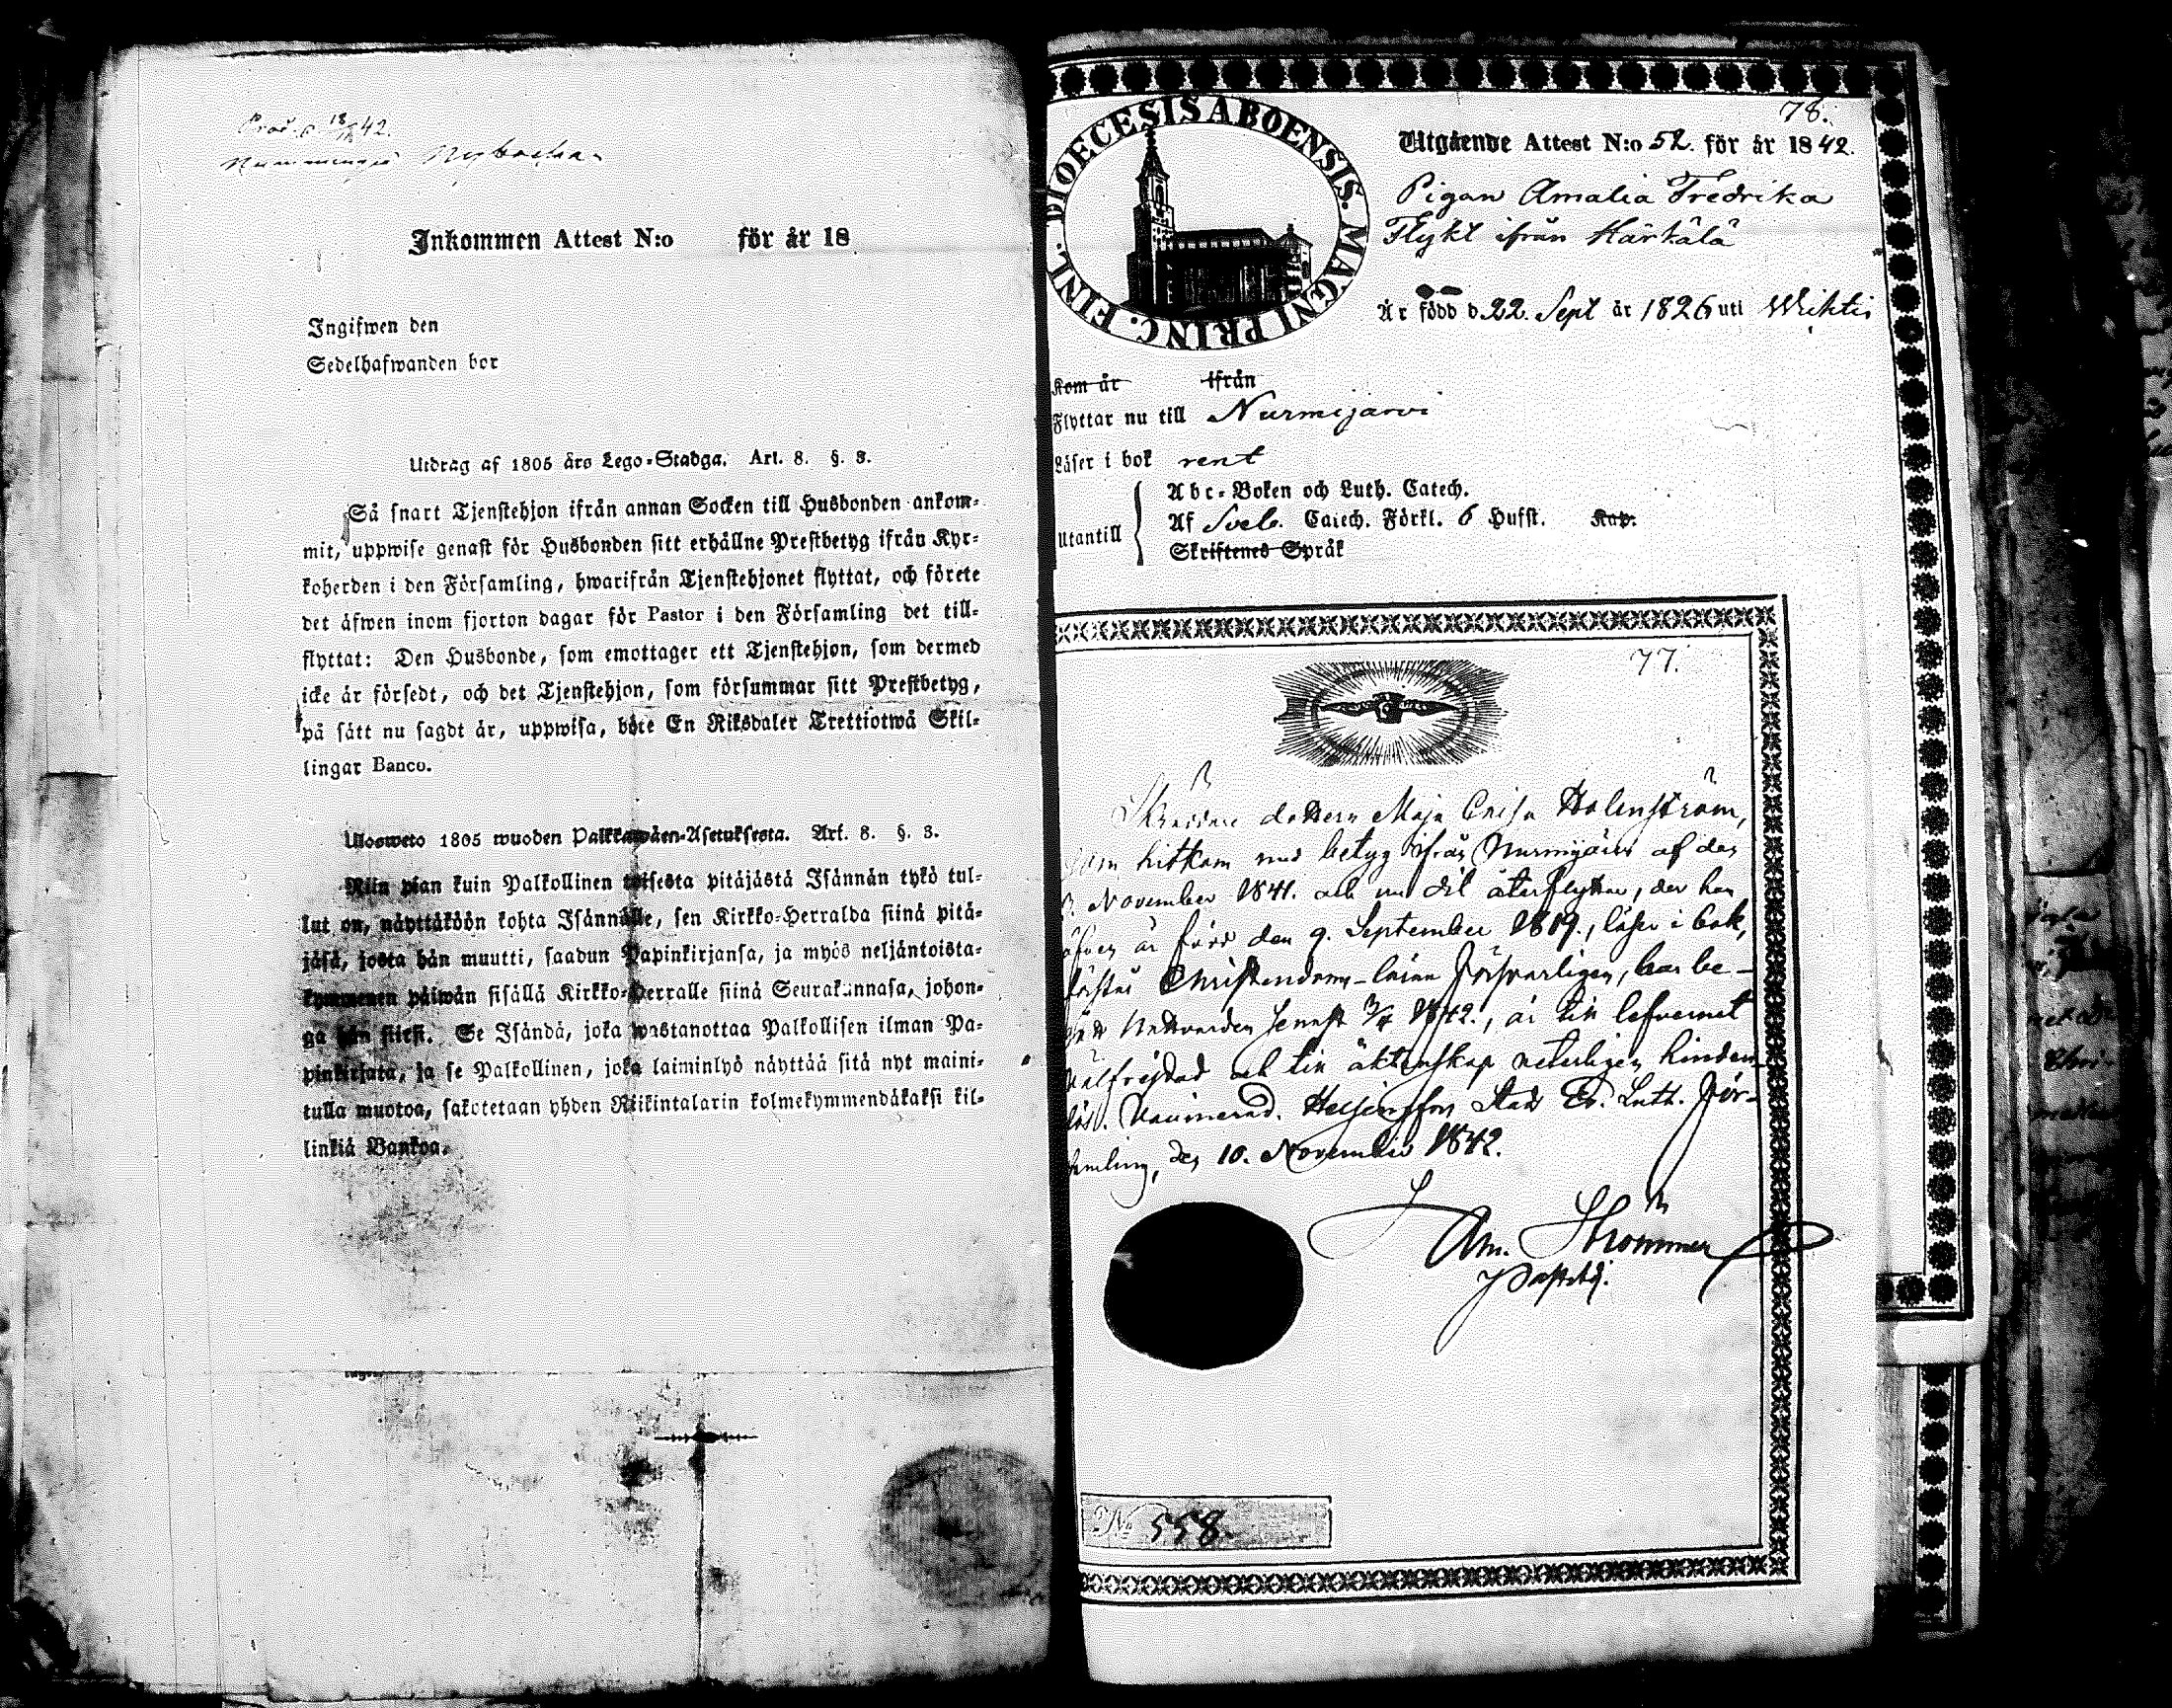 Prod. d. 18/11 42.
Inkommen Attest N:o för år 18
Ingifwen den
Sedelhafwanden bor
Utdrag af 1805 års Lego-Stadga. Art. 8. §. 3.
Så snart Tjenstehjon ifrån annan Socken till Husbonden ankom-
mit, uppwise genast för Husbonden sitt erhållne Prestbetyg ifrån Kyr-
koherden i den Församling, hwarifrån Tjenstehjonet flyttat, och förete
det äfwen inom fjorton dagar för Pastor i den Församling det till-
flyttat: Den Husbonde, som emottager ett Tjenstehjon, som dermed
icke är försedt, och det Tjenstehjon, som försummar sitt Prestbetyg,
på sätt nu sagdt är, uppwisa, böte En Riksdaler Trettiotwå Skil-
lingar Banco.
Ulosweto 1805 wuoden Palkkawäen-Asetuksesta. Art. 8. §. 3.
Niin pian kuin Palkollinen toisesta pitäjästä Isännän tykö tul-
lut on, näyttäköön kohta Isännälle, sen Kirkko-Herralda siinä pitä-
jäsä, josta hän muutti, saadun Papinkirjansa, ja myös neljäntoista-
kymmenen päiwän sisällä Kirkko-Herralle siinä Seurakunnasa, johon-
ga hän siirsi. Se Isändä, joka wastanottaa Palkollisen ilman Pa-
pinkirjata, ja se Palkollinen, joka laiminlyö näyttää sitä nyt maini-
tulla muotoa, sakotetaan yhden Riikintalarin kolmekymmendäkaksi kil-
linkiä Bankoa.
DIOECESIS ABOENSIS. MAGNI PRINC. FINL.
78.
Utgående Attest N:o 52. för år 1842.
Pigan Amalia Fredrika
Flykt ifrån Härkälä
Är född d. 22. Sept år 1826 uti Wichtis
Kom år ifrån
Flyttar nu till Nurmijärvi
Läser i bok rent
Utantill
Abc-Boken och Luth. Catech.
Af Sveb. Catech. Förkl. 6 Hufst. Kap.
Skriftenes Språk
77.
Skräddare dottern Maja Caisa Holmström,
som hitkom med betyg ifrån Nurmijärvi af den
November 1841. och nu dit återflyttar, der hon
äfven är född den 9. September 1819., läser i bok,
förstår Christendoms-läran försvarligen, har be-
gått Nattvarden senast 1842., är till lefvernet
välfrejdad och till äktenskap veterligen hinder-
lös. Vaccinerad. Helsingfors Stads Ev. Luth. För-
samling, den 10. November 1842.
No 558.